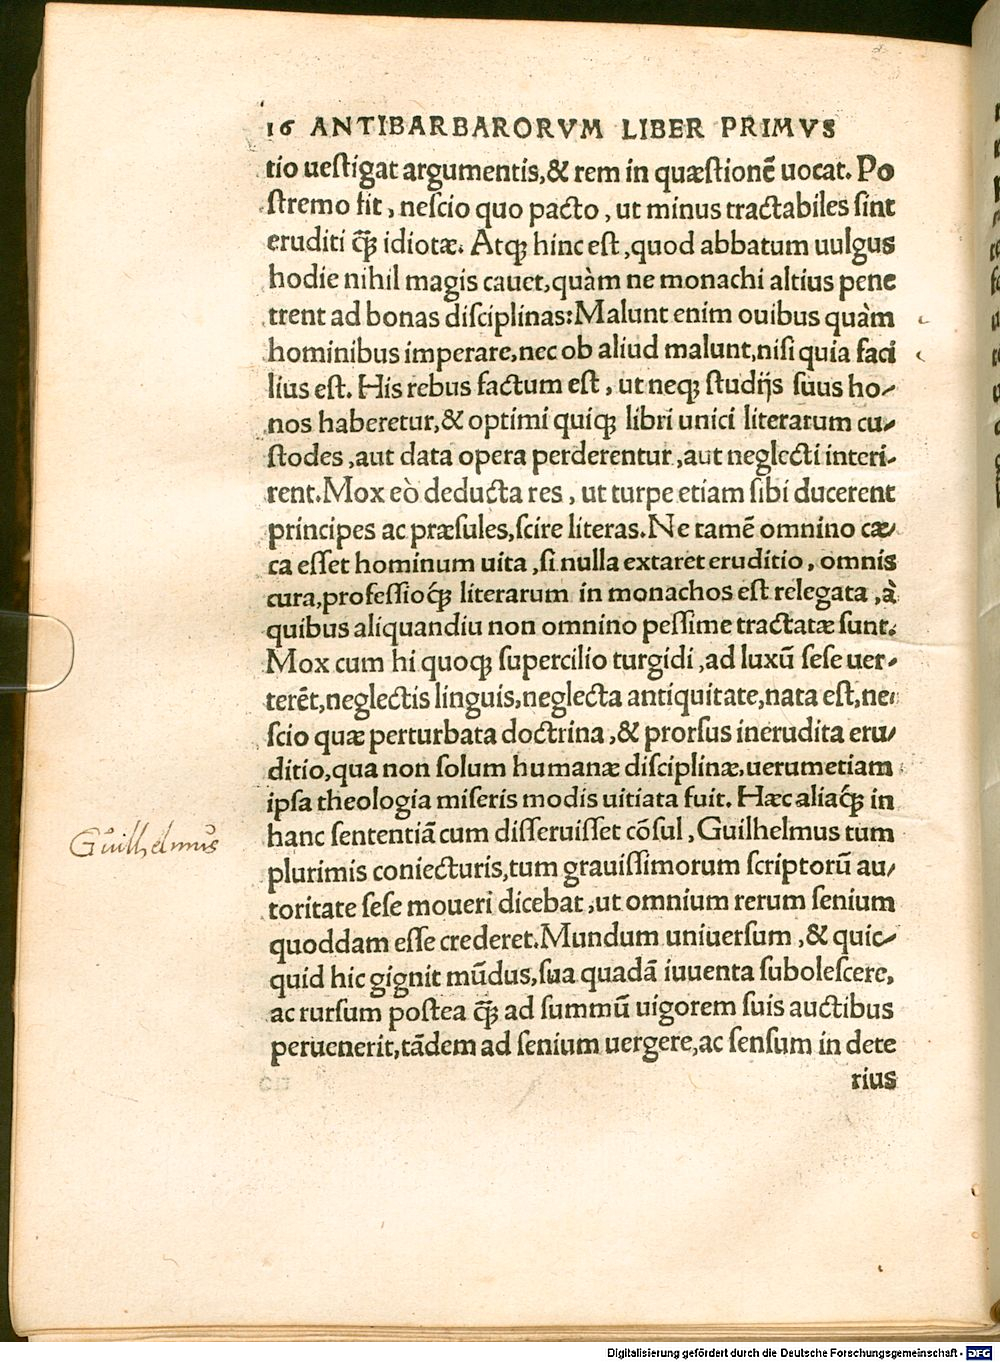 16 ANTIBARBARORVM LIBER PRIMVS
tio ueſtigat argumentis,& rem in quæſtionē uocat. Po
ſtremo fit, neſcio quo pacto, ut minus tractabiles ſint
eruditi q̃ꝫ idiotæ. Atqꝫ hinc eſt, quod abbatum uulgus
hodie nihil magis cauet, quàm ne monachi altius pene
trent ad bonas diſciplinas: Malunt enim ouibus quàm
hominibus imperare, nec ob aliud malunt, niſi quia faci
lius eſt. His rebus factum eſt, ut neqꝫ ſtudijs ſuus ho-
nos haberetur, & optimi quiqꝫ libri unici literarum cu-
ſtodes, aut data opera perderentur, aut neglecti interi-
rent. Mox eò deducta res, ut turpe etiam ſibi ducerent
principes ac præſules, ſcire literas. Ne tamē omnino cæ-
ca eſſet hominum uita, ſi nulla extaret eruditio, omnis
cura, profeſſioq́ꝫ literarum in monachos eſt relegata, à
quibus aliquandiu non omnino peſſime tractatæ ſunt.
Mox cum hi quoqꝫ ſupercilio turgidi, ad luxū ſeſe uer-
terēt, neglectis linguis, neglecta antiquitate, nata eſt, ne-
ſcio quæ perturbata doctrina, & prorſus inerudita eru-
ditio, qua non ſolum humanæ diſciplinæ, uerumetiam
ipſa theologia miſeris modis uitiata fuit. Hæc aliaq́ꝫ in
hanc ſententiā cum diſſeruiſſet cōſul, Guilhelmus tum
Guilhelmus
plurimis coniecturis, tum grauiſſimorum ſcriptorū au-
toritate ſeſe moueri dicebat, ut omnium rerum ſenium
quoddam eſſe crederet. Mundum uniuerſum, & quic-
quid hic gignit mūdus, ſua quadā iuuenta ſuboleſcere,
ac rurſum poſtea q̃ꝫ ad ſummū uigorem ſuis auctibus
peruenerit, tādem ad ſenium uergere, ac ſenſum in dete
rius
Digitalisierung gefördert durch die Deutsche Forschungsgemeinschaft - DFG